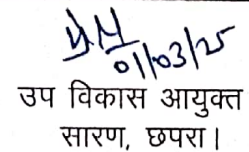 01/03/25
उप विकास आयुक्त
सारण, छपरा।